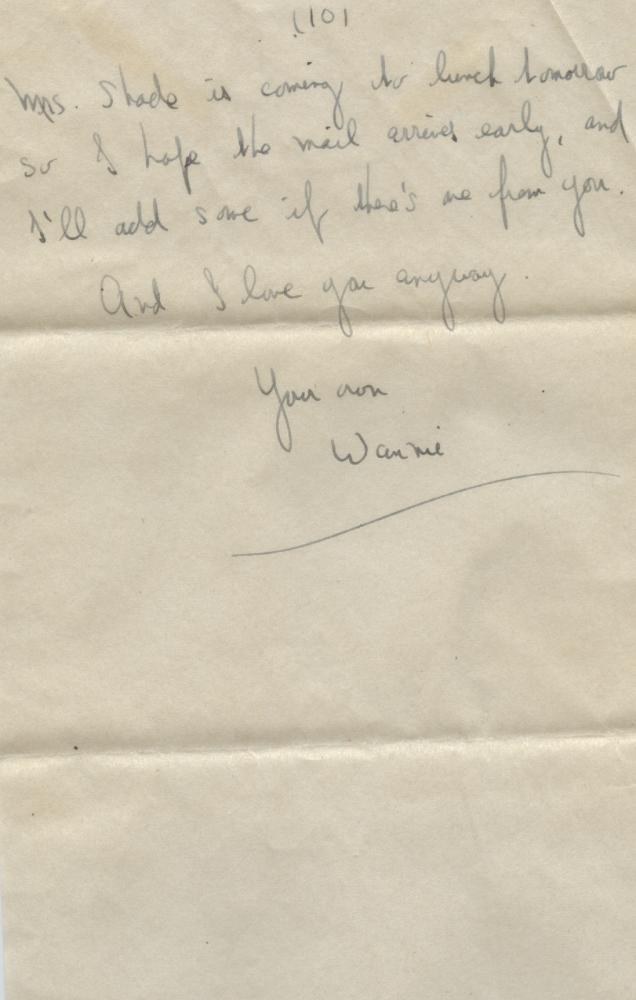 (10)
Mrs. Shade is coming to lunch tomorrow
so I hope the mail arrives early, and
I'll add some if there's one from you.
And I love you anyway.
Your own
Wannie